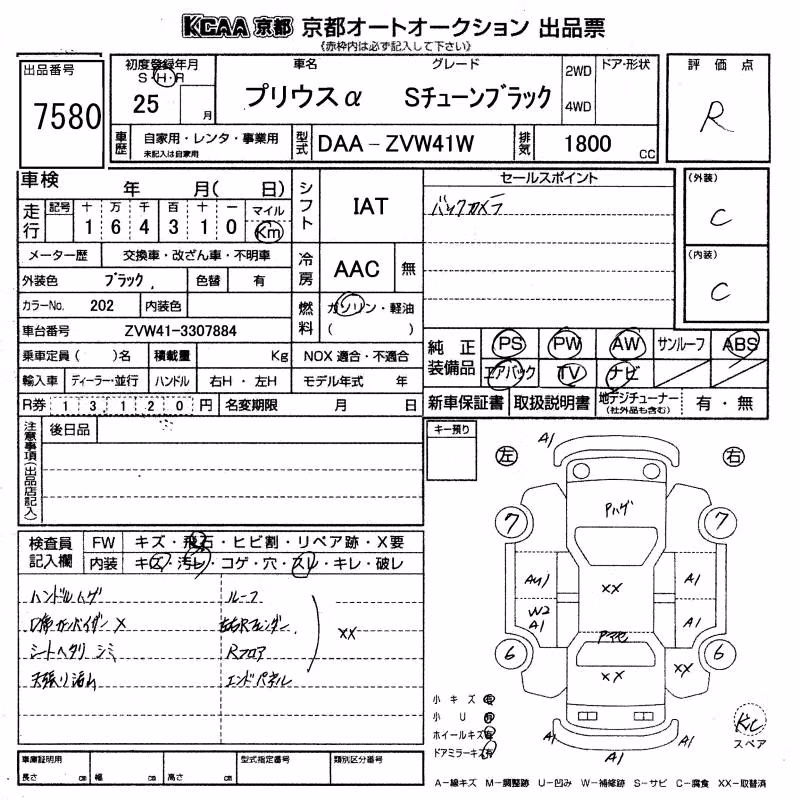 KCAA 京都 京都オートオークション 出品票
《赤枠内は必ず記入して下さい》
出品番号
7580
初度登録年月
S・H・R
25 月
車名
プリウスα
グレード
Sチューンブラック
2WD
4WD
ドア・形状
評価点
R
車歴
自家用・レンタ・事業用
未記入は自家用
型式
DAA－ZVW41W
排気
1800 cc
車検 年 月( 日)
走行
記号 十 万 千 百 十 一 マイル
1 6 4 3 1 0 Km
メーター歴 交換車・改ざん車・不明車
外装色 ブラック 色替 有
カラーNo. 202 内装色
車台番号 ZVW41-3307884
乗車定員( )名 積載量 Kg
輸入車 ディーラー・並行 ハンドル 右H・左H
R券 13,120円 名変期限 月 日
シフト
IAT
冷房
AAC 無
燃料
ガソリン・軽油
( )
NOX 適合・不適合
モデル年式 年
セールスポイント
バックカメラ
(外装)
C
(内装)
C
純正装備品
PS PW AW サンルーフ ABS
エアバック TV ナビ
新車保証書 取扱説明書 地デジチューナー
(社外品も含む)
有・無
注意事項(出品店記入)
後日品
キー預り
左
右
A1
7
7
Pハゲ
AU1
XX
A1
W2
A1
A1
6
6
XX
XX
A1
A1
A1
スペア
小キズ
小U
ホイールキズ
ドアミラーキズ
検査員記入欄
FW キズ・飛石・ヒビ割・リペア跡・X要
内装 キズ・汚レ・コゲ・穴・スレ・キレ・破レ
ハンドルハゲ
シートヘタリ シミ
ルーフ
Rフロア
エンドパネル
XX
車庫証明用
長さ cm 幅 cm 高さ cm
型式指定番号
類別区分番号
A－線キズ M－調整跡 U－凹み W－補修跡 S－サビ C－腐食 XX－取替済